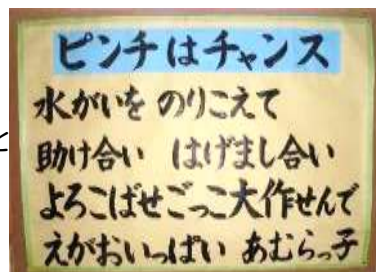 ピンチはチャンス
水がいを のりこえて
助け合い はげまし合い
よろこばせごっこ大作せんで
えがおいっぱい あむらっ子